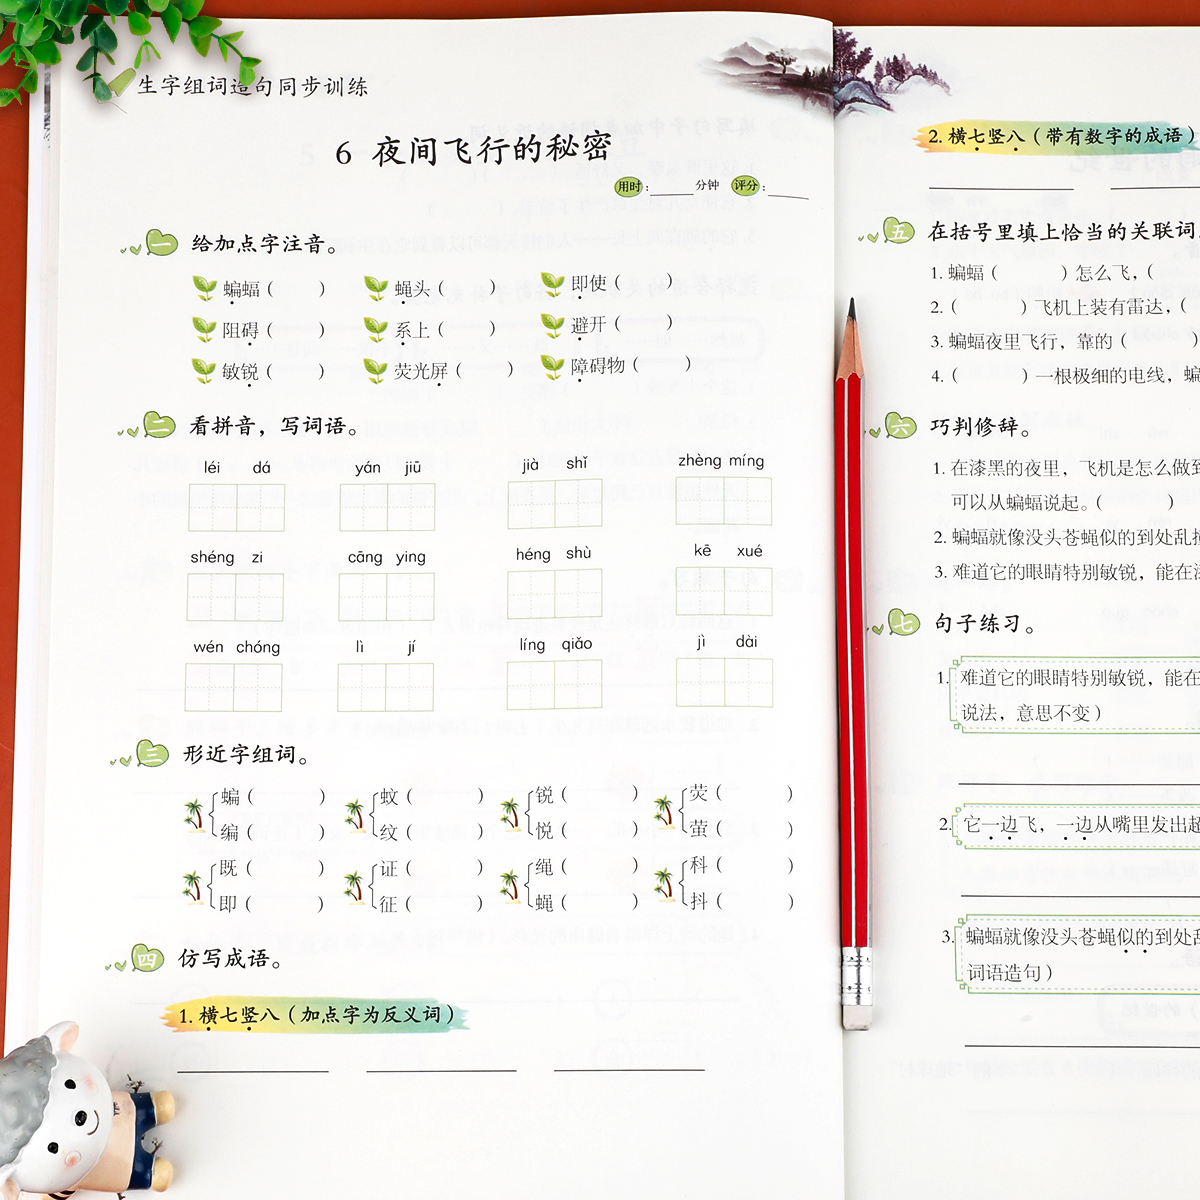 生字组词造句同步训练
6 夜间飞行的秘密
用时：______ 分钟 评分：______
一 给加点字注音。
蝙蝠（　　） 蝇头（　　） 即使（　　）
阻碍（　　） 系上（　　） 避开（　　）
敏锐（　　） 荧光屏（　　） 障碍物（　　）
二 看拼音，写词语。
léi dá yán jiū jià shǐ zhèng míng
shéng zi cāng ying héng shù kē xué
wén chóng lì jí líng qiǎo jì dài
三 形近字组词。
蝙（　　） 蚊（　　） 锐（　　） 荧（　　）
编（　　） 纹（　　） 悦（　　） 萤（　　）
既（　　） 证（　　） 绳（　　） 科（　　）
即（　　） 征（　　） 蝇（　　） 抖（　　）
四 仿写成语。
1. 横七竖八（加点字为反义词）
2. 横七竖八（带有数字的成语）
五 在括号里填上恰当的关联词
1. 蝙蝠（　　）怎么飞，（
2.（　　）飞机上装有雷达，（
3. 蝙蝠夜里飞行，靠的（　　）
4.（　　）一根极细的电线，蝙
六 巧判修辞。
1. 在漆黑的夜里，飞机是怎么做到
可以从蝙蝠说起。（　　）
2. 蝙蝠就像没头苍蝇似的到处乱撞
3. 难道它的眼睛特别敏锐，能在漆
七 句子练习。
1. 难道它的眼睛特别敏锐，能在
说法，意思不变）
2. 它一边飞，一边从嘴里发出超
3. 蝙蝠就像没头苍蝇似的到处乱
词语造句）